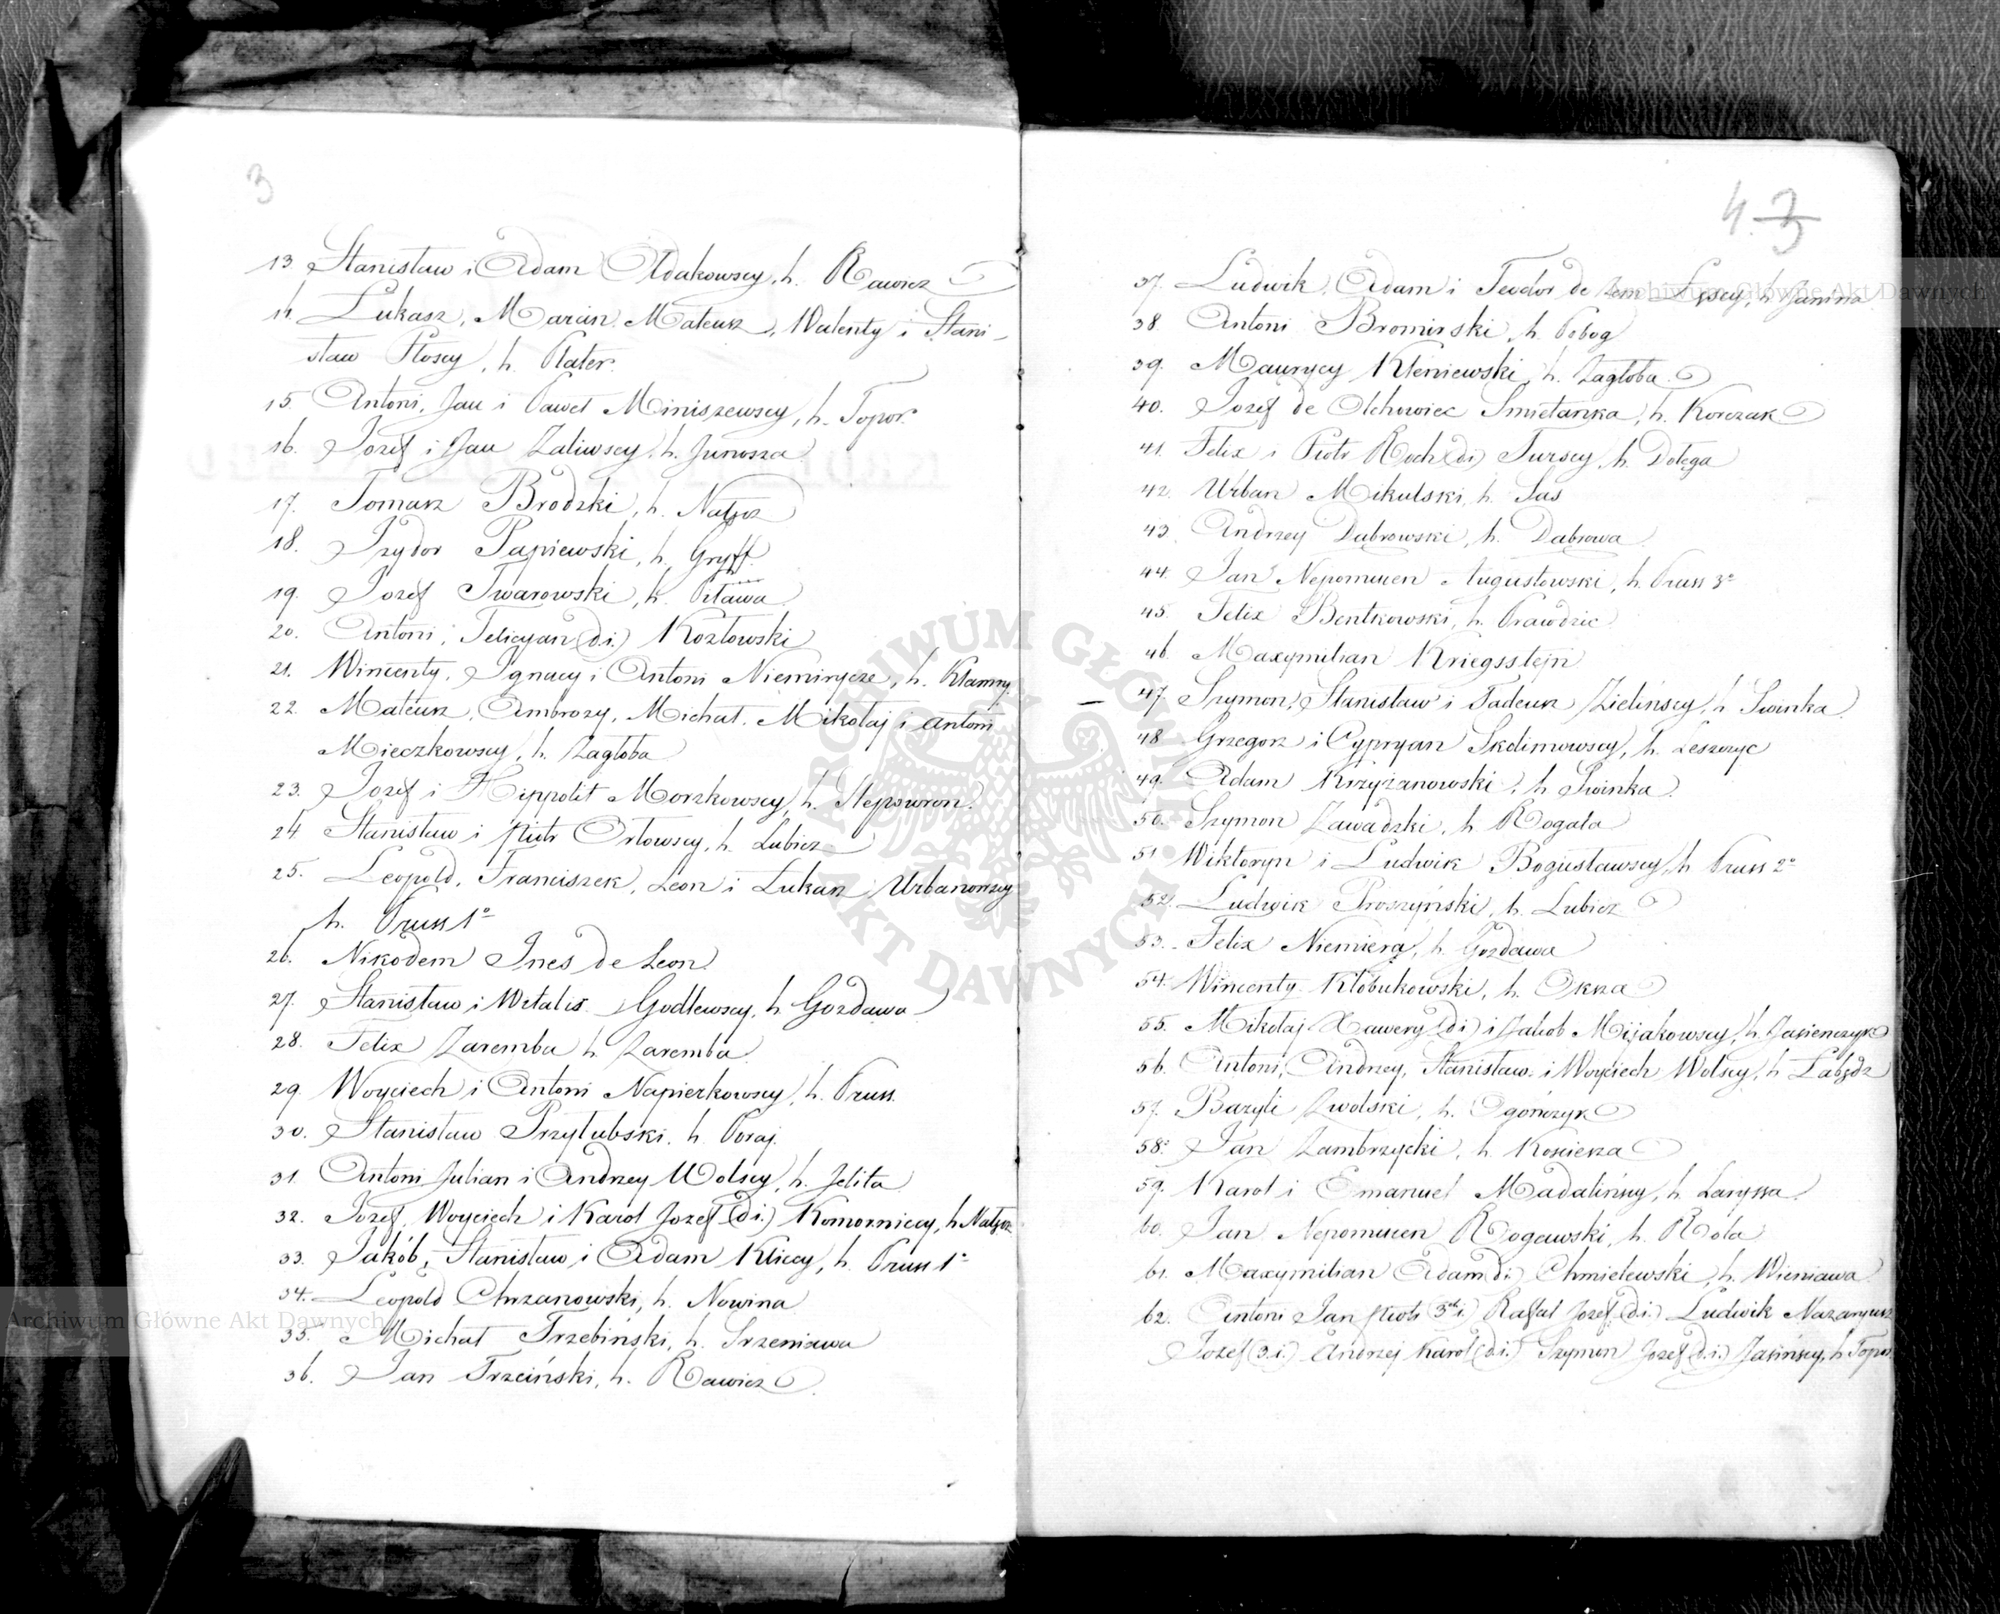 3
13. Stanisław i Adam Ołdakowscy, h. Rawicz
14. Łukasz, Marcin, Mateusz, Walenty i Stani-
sław Płoscy, h. Prater.
15. Antoni, Jan i Paweł Miniszewscy, h. Topor.
16. Jozef i Jan Zaliwscy, h. Junosza
17. Tomasz Brodzki, h. Nałęcz
18. Izydor Papiewski, h. Gryff.
19. Jozef Twarowski, h. Pilawa
20. Antoni, Felicyan (d.i.) Kozłowski
21. Wincenty, Ignacy i Antoni Niemirycze, h. Klamry.
22. Mateusz, Ambrozy, Michał, Mikołaj i Antoni
Mieczkowscy, h. Zagłoba
23. Jozef i Hippolit Morzkowscy, h. Slepowron.
24. Stanisław i Piotr Orłowscy, h. Lubicz
25. Leopold, Franciszek, Leon i Łukasz Urbanowscy
h. Pruss 1°
26. Nikodem Ines de Leon.
27. Stanisław i Witalis Godlewscy, h. Gozdawa
28. Felix Zaremba h. Zaremba
29. Woyciech i Antoni Napierkowscy, h. Pruss.
30. Stanisław Przyłubski, h. Poraj.
31. Antoni Julian i Andrzey Wolscy, h. Jelita
32. Jozef, Woyciech i Karol Jozef (d.i.) Komorniccy, h. Nałęcz
33. Jakób, Stanisław i Adam Kliccy, h. Pruss 1°
34. Leopold Chrzanowski, h. Nowina
35. Michał Trzebiński, h. Szreniawa
36. Jan Trzciński, h. Rawicz
4. 3
37. Ludwik, Adam i Teodor de Łęscy, h. Janina
38. Antoni Bromirski, h. Pobog
39. Maurycy Kleniewski, h. Zagłoba
40. Jozef de Olchowiec Smietanka, h. Korczak
41. Felix i Piotr Roch (d.i.) Turscy, h. Dołęga
42. Urban Mikulski, h. Sas
43. Andrzey Dąbrowski, h. Dąbrowa
44. Jan Nepomucen Augustowski, h. Pruss 3°
45. Felix Bentkowski, h. Prawdzic
46. Maxymilian Kriegsstejn
47. Szymon, Stanisław i Tadeusz Zielińscy, h. Swinka
48. Grzegorz i Cypryan Skolimowscy, h. Leszczyc
49. Adam Krzyżanowski, h. Swinka
50. Szymon Zawadzki, h. Rogala
51. Wiktoryn i Ludwik Bogusławscy, h. Pruss 2°
52. Ludwik Proszyński, h. Lubicz
53. Felix Niemiera, h. Gozdawa
54. Wincenty Kłobukowski, h. Oksza
55. Mikołaj Xawery (d.i) i Jakób Mijakowscy, h. Jasienczyk
56. Antoni, Andrzey, Stanisław i Woyciech Wolscy, h. Łabędz
57. Bazyli Zwolski, h. Ogończyk
58. Jan Zambrzycki, h. Kosciesza
59. Karol i Emanuel Madalińscy, h. Laryssa
60. Jan Nepomucen Rogawski, h. Rola
61. Maxymilian Adam (d.i.) Chmielewski, h. Wieniawa
62. Antoni Jan Piotr (3ch i.) Rafał Jozef (d.i.) Ludwik Nazaryusz
Jozef (3.i.) Andrzej Karol (d.i.) Szymon Jozef (d.i.) Jasińscy, h. Topor.
Archiwum Główne Akt Dawnych
Archiwum Główne Akt Dawnych
ARCHIWUM GŁÓWNE
AKT DAWNYCH